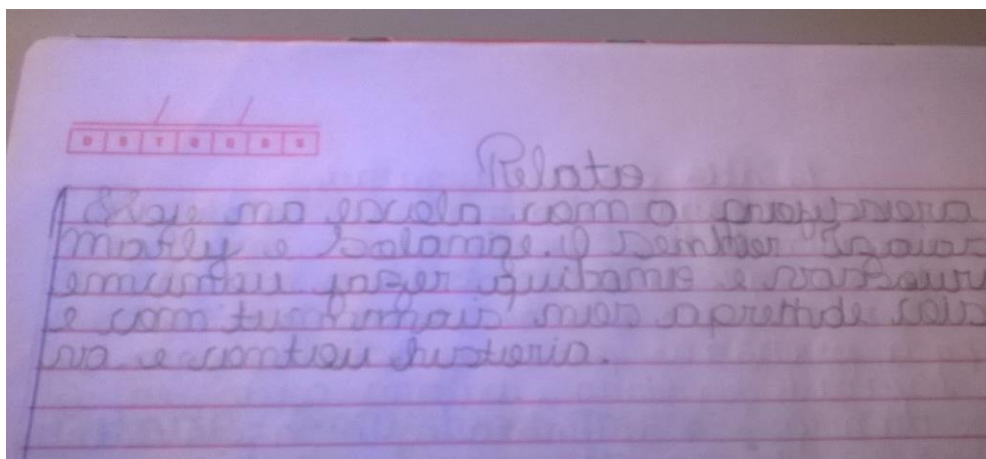 D S T Q Q S S
Relato
Hoje na escola com a professora
Marly e Solange. O Senhor
fazer quibane e vassoura
e com mas aprende cois
va e contou historia.